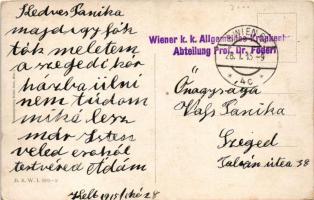 Kedves Panika
majd így fók
tok meletem
a szegedi kór
házba ülni
nem tudom
miko lesz
már Isten
veled csokol
testvéred Ádám
Kelt 1915/1 hó 28
B. K. W. I.
Wiener k. k. Allgemeine Kranken
Abteilung Prof. Dr. Foderl
WIEN
28. I. 15 - 9
* 4c *
Ő
Önagysága
Vass Panika
Szeged
utca 38